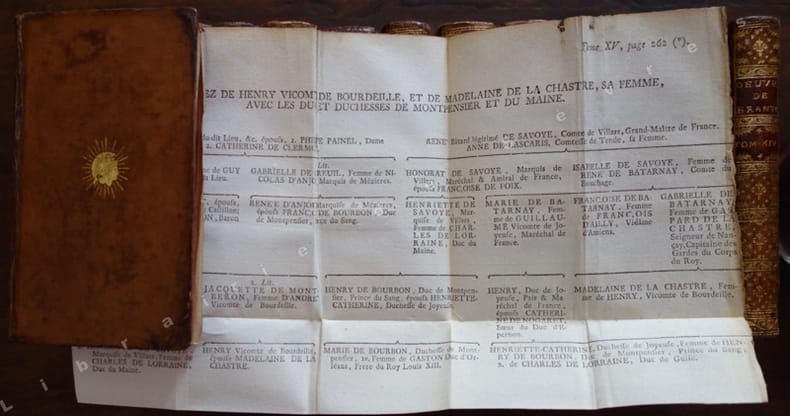 Tome XV, page 262 (*).
EZ DE HENRY VICOM DE BOURDEILLE, ET DE MADELAINE DE LA CHASTRE, SA FEMME,
AVEC LES DU ET DUCHESSES DE MONTPENSIER ET DU MAINE.
du dit Lieu, &c. épousa, 1. PAINEL, Dame
2. CATHERINE DE CLERMO
RENE légitimé DE SAVOYE, Comte de Villars, Grand-Maître de France.
ANNE DE LASCARIS, Comtesse de Tende, sa Femme.
me de GUY
it Lieu.
Lit.
GABRIELLE DE REUIL, Femme de NI-
COLAS D'ANJO Marquis de Mézieres.
HONORAT DE SAVOYE, Marquis de
Villars, Maréchal & Amiral de France,
épousa FRANÇOISE DE FOIX.
ISABELLE DE SAVOYE, Femme de
RENE DE BATARNAY, Comte du
Bouchage.
épousa,
Castillon;
ON, Baron
RENE D'ANJO Marquise de Mézieres,
épousa FRANÇ DE BOURBON, Duc
de Montpensier, du Sang.
HENRIETTE DE
SAVOYE, Mar-
quise de Villars,
Femme de CHAR-
LES DE LOR-
RAINE, Duc du
Maine.
MARIE DE BA-
TARNAY, Fem-
me de GUILLAU-
ME Vicomte de Jo-
yeuse, Maréchal de
France.
FRANÇOISE DE BA-
TARNAY, Femme
de FRANÇOIS
D'AILLY, Vidâme
d'Amiens.
GABRIELLE DE
BATARNAY,
Femme de GAS-
PARD DE LA
CHASTRE,
Seigneur de Nan-
çay, Capitaine des
Gardes du Corps
du Roy.
2. Lit.
JACQUETTE DE MONT-
BERON, Femme D'ANDRE
Vicomte de Bourdeille.
HENRY DE BOURBON, Duc de Montpen-
sier, Prince du Sang, épousa HENRIETTE-
CATHERINE, Duchesse de Joyeuse.
HENRY, Duc de Jo-
yeuse, Pair & Ma-
réchal de France,
épousa CATHERI-
NE DE NOGARET,
Sœur du Duc d'E-
pernon.
MADELAINE DE LA CHASTRE, Fem-
me de HENRY, Vicomte de Bourdeille.
Marquise de Villars, Femme de
CHARLES DE LORRAINE,
Duc du Maine.
HENRY Vicomte de Bourdeille,
épousa MADELAINE DE LA
CHASTRE.
MARIE DE BOURBON, Duchesse de Mont-
pensier, 1e. Femme de GASTON Duc d'Or-
léans, Frere du Roy Louis XIII.
HENRIETTE-CATHERINE, Duchesse de Joyeuse, Femme de HEN-
RY DE BOURBON, Duc de Montpensier, Prince du Sang,
2. de CHARLES DE LORRAINE, Duc de Guise.
OEUV
DE
BRANT
TOM XIV